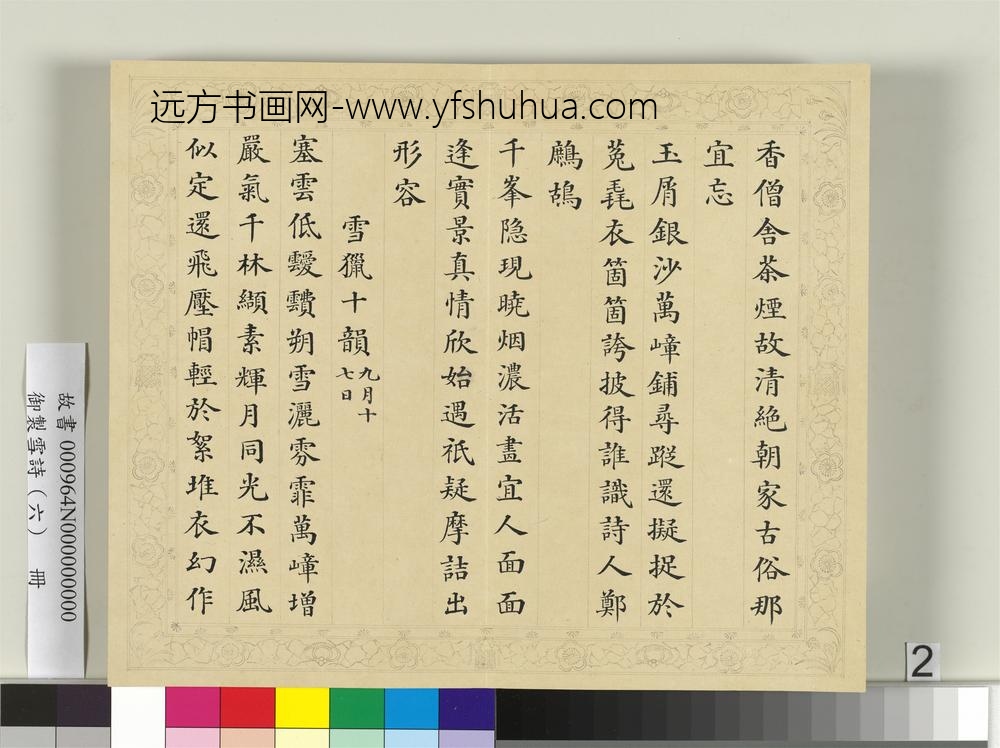 远方书画网-www.yfshuhua.com
香僧舍茶煙故清絕朝家古俗那
宜忘
玉屑銀沙萬嶂鋪尋蹤還擬捉於
菟毳衣箇箇誇披得誰識詩人鄭
鷓鴣
千峯隐現曉烟濃活畫宜人面面
逢實景真情欣始遇祇疑摩詰出
形容
雪獵十韻 九月十七日
塞雲低靉靅朔雪灑雰霏萬嶂增
嚴氣千林纈素輝月同光不濕風
似定還飛壓帽輕於絮堆衣幻作
故書 000964N000000000
御製雪詩（六） 冊
2